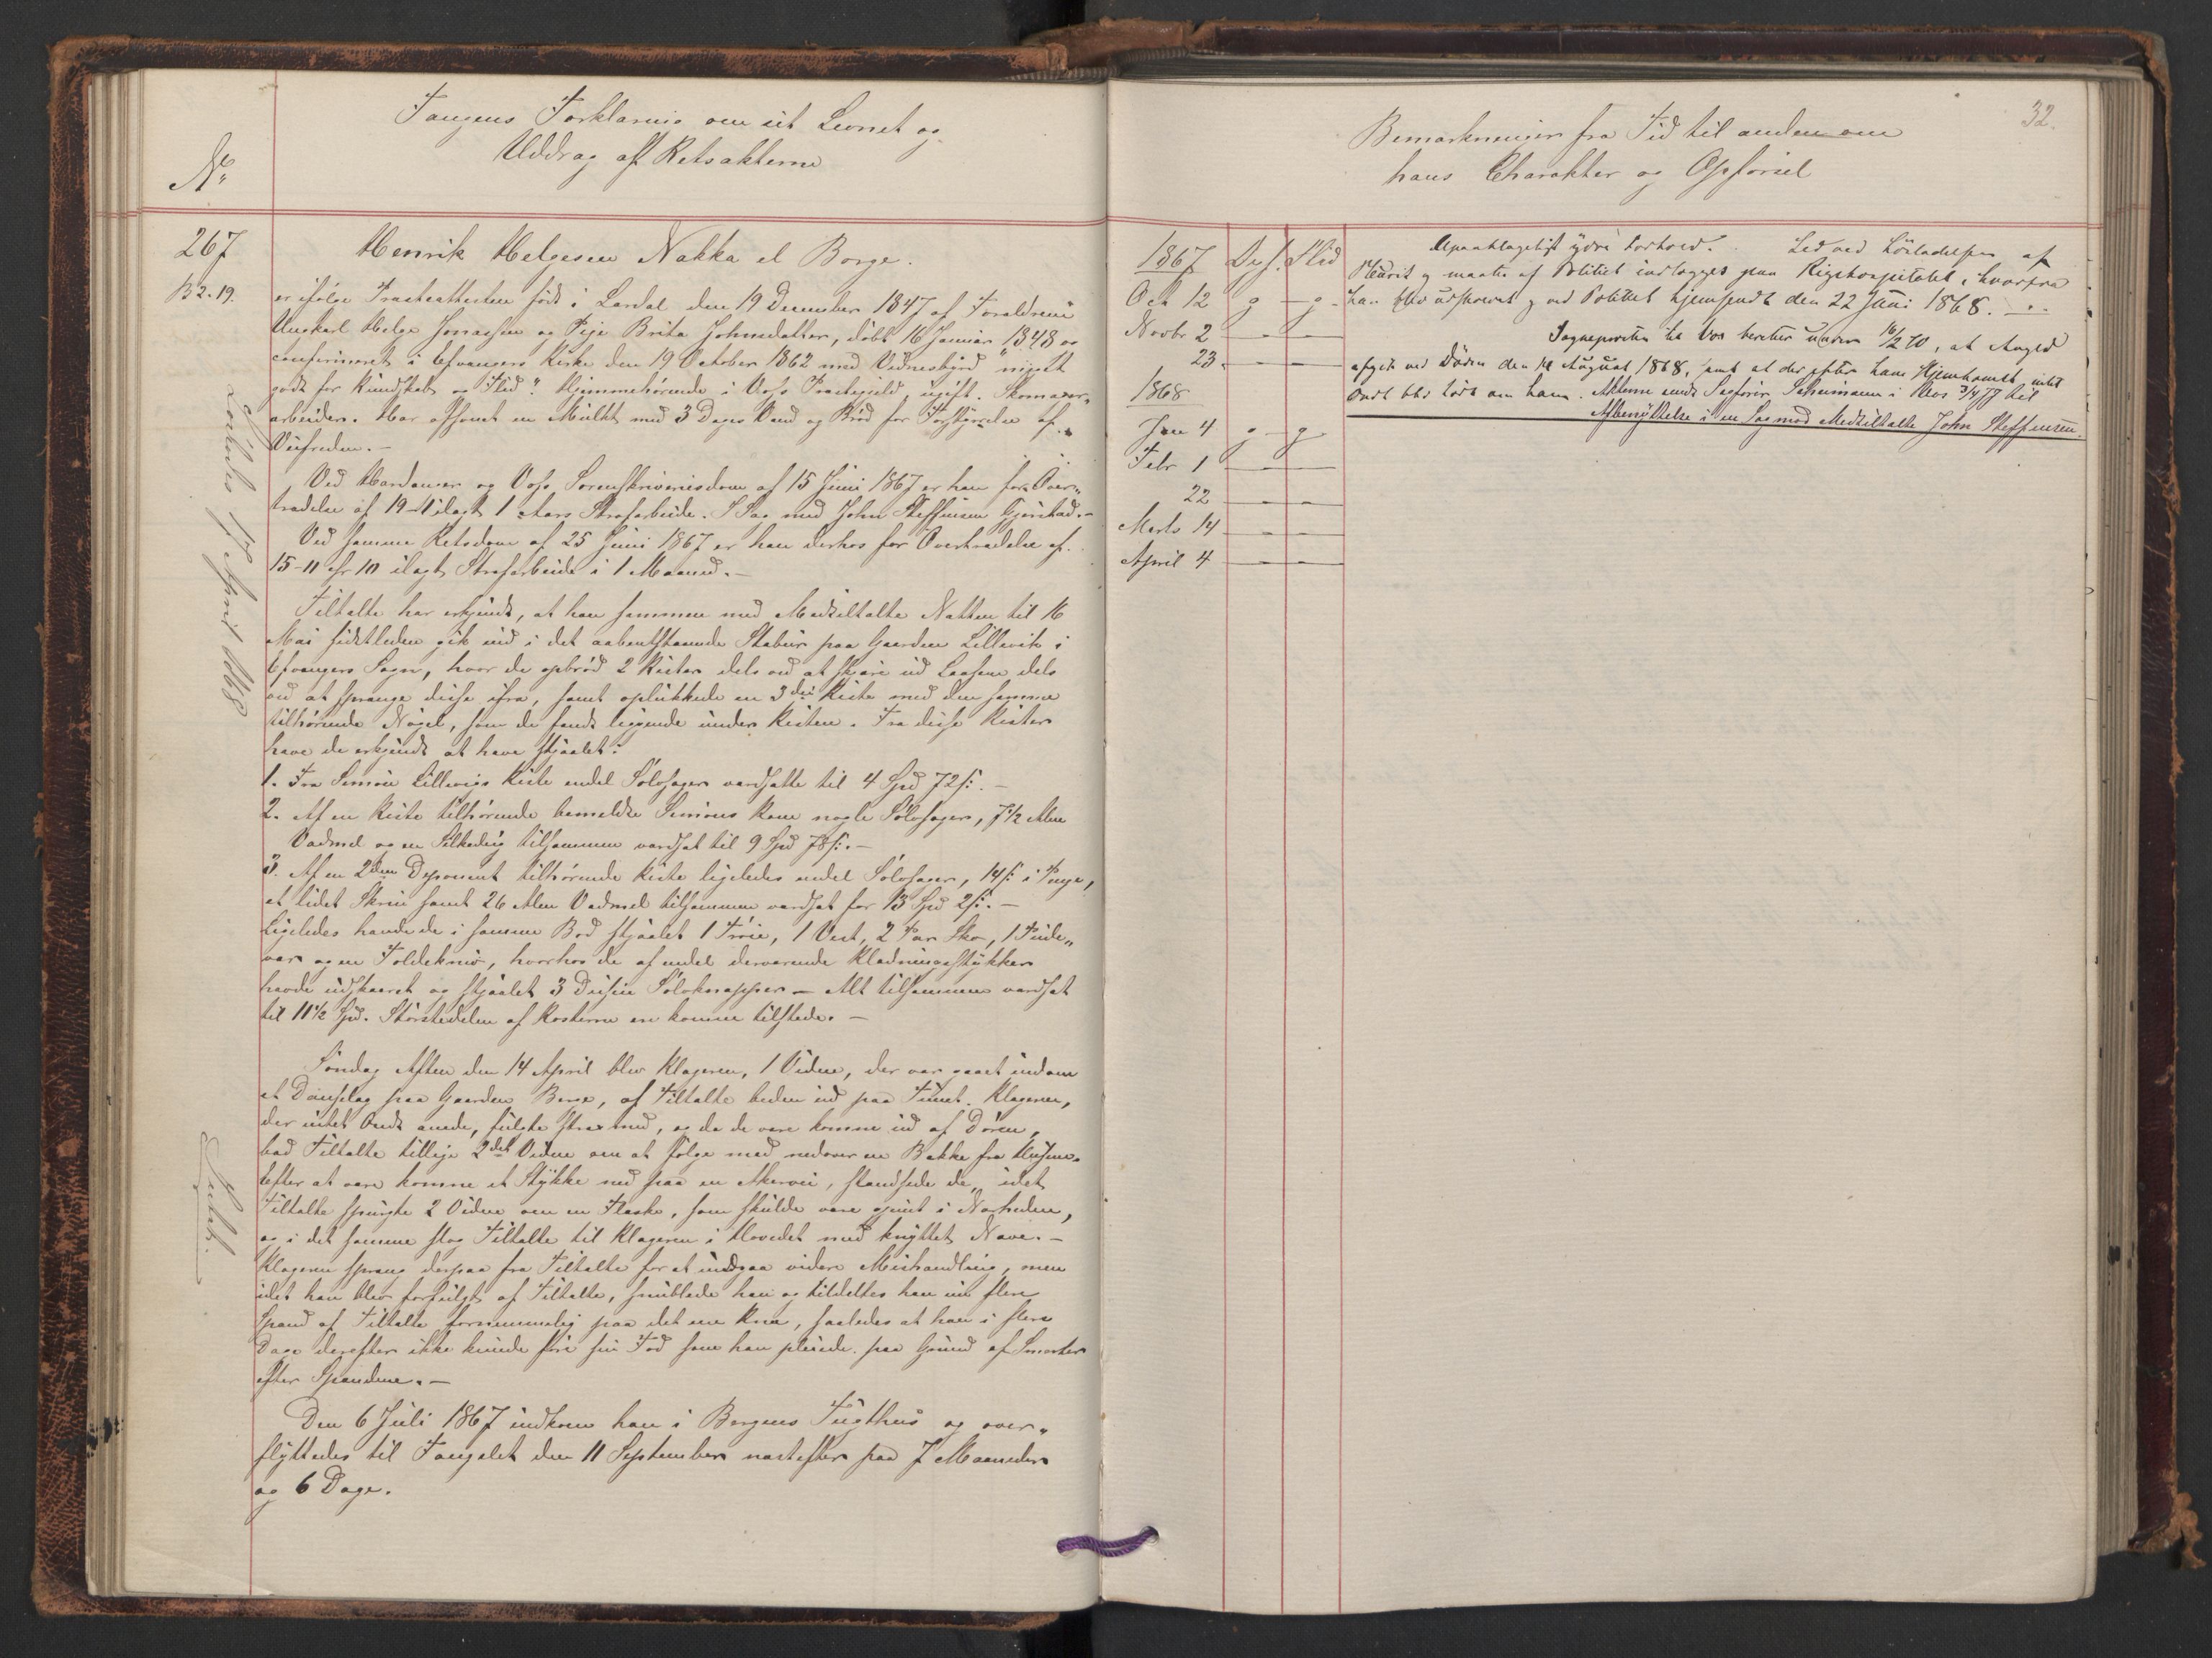 Fangens Forklaring om sit Levnet og
Uddrag af Retsakterne
No
267
B 2. 19.
Løslades 17 April 1868
Henrik Helgesen Nakka el Borge.
er ifølge Præsteattesten født i Lærdal den 19 December 1847 af Forældrene
Ungkarl Helge Jonassen og Pige Brita Johnsdatter, døbt 16 Januar 1848 og
confirmeret i Evangers Kirke den 19 October 1862 med Vidnesbyrd "meget
godt for Kundskab og Flid". Hjemmehørende i Voss Præstegjeld, ugift. Skomager„
arbeider. Har afsonet en Mulkt med 3 Dages Vand og Brød for Forstyrrelse af
Veifreden.—
Ved Hardanger og Voss Sorenskriveriesdom af 15 Juni 1867 er han for Over„
trædelse af 19–4 ilagt 1 Aars Strafarbeide. I Sag med John Steffensen Gjerstad.—
Ved samme Retsdom af 25 Juni 1867 er han derhos for Overtrædelse af
15–11 cfr 10 ilagt Strafarbeide i 1 Maaned.—
Tiltalte har erkjendt, at han sammen med Medtiltalte Natten til 16
Mai sidstleden gik ind i det aabentstaaende Stabur paa Gaarden Lillevik i
Evangers Sogn, hvor de opbrød 2 Kister dels ved at skjære ud Laasene dels
ved at sprænge disse ifra, samt oplukkede en 3die Kiste med den samme
tilhørende Nøgel, som de fandt liggende under Kisten. Fra disse Kister
have de erkjendt at have stjaalet:
1. Fra Simon Lillevigs Kiste endel Sølvsager værdsatte til 4 Spd 72 s.—
2. Af en Kiste tilhørende bemeldte Simons Kone nogle Sølvsager, 7½ Alen
Vadmel og en Silkedug tilsammen værdsat til 9 Spd 78 s.—
3. Af en 2den Deponent tilhørende Kiste ligeledes endel Sølvsager, 14 s. i Penge,
et lidet Skrin samt 26 Alen Vadmel tilsammen værdsat for 13 Spd 2 s.—
Ligeledes havde de i samme Bod stjaalet 1 Trøie, 1 Vest, 2 Par Sko, 1 Pude„
vaar og en Foldekniv, hvorhos de af endel derværende Klædningsstykker
havde udskaaret og stjaalet 3 Dusin Sølvknapper — Alt tilsammen værdsat
til 11½ Spd. Størstedelen af Kosterne ere komne tilstede.—
Søndag Aften den 14 April blev Klageren, 1 Vidne, der var gaaet indom
et Dandselag paa Gaarden Berge, af Tiltalte beden ud paa Tunet. Klageren,
der intet Ondt anede, fulgte strax med, og da de vare komne ud af Døren,
bad Tiltalte tillige 2det Vidne om at følge med nedover en Bakke fra Husene.
Efter at være komne et Stykke ned paa en Akervei, standsede de, idet
Tiltalte spurgte 2 Vidne om en Flaske, som skulde være gjemt i Nærheden,
og i det samme slog Tiltalte til Klageren i Hovedet med knyttet Næve.—
Klageren sprang derpaa fra Tiltalte for at undgaa videre Mishandling, men
idet han blev forfulgt af Tiltalte, snublede han og tildeltes han nu flere
Spænd af Tiltalte fornemmelig paa det ene Knæ, saaledes at han i flere
Dage derefter ikke kunde føre sin Fod som han pleiede paa Grund af Smerter
efter Spændene.—
Den 6 Juli 1867 indkom han i Bergens Tugthus og over„
flyttedes til Fængslet den 11 September næstefter paa 7 Maaneder
og 6 Dage.
32.
Bemærkninger fra Tid til anden om
hans Charakter og Opførsel
1867 Opf. Flid
Oct 12 g — g
Novbr 2 — —
23. — —
1868
Jan 4 g — g
Febr 1 — —
22 — —
Marts 14 — —
April 4 — —
Upaaklageligt ydre Forhold. Led ved Løsladelsen af
Pleurit og maatte af Politiet indlægges paa Rigshospitalet, hvorfra
han blev udskrevet og ved Politiet hjemsendt den 22 Juni 1868.
Sognepresten til Vos beretter under 16/2 70, at Angjd
afgik ved Døden den 14 August 1868, samt at der efter hans Hjemkomst intet
ondt blev hørt om ham. Akterne sendt Sagfører i Vos 3/4 77 til
Afbenyttelse i en Sag mod Medtiltalte John Steffensen.